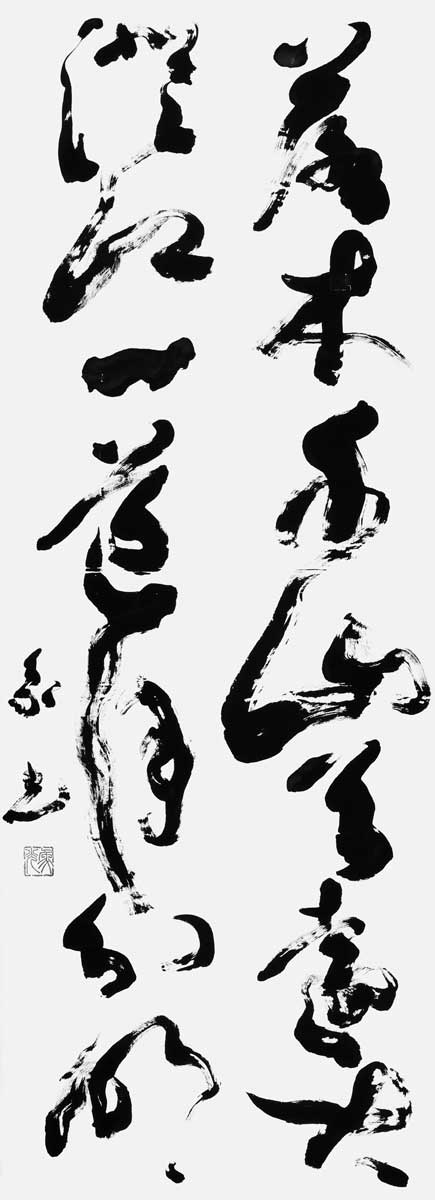 落木千山天遠大
澄江一道月分明